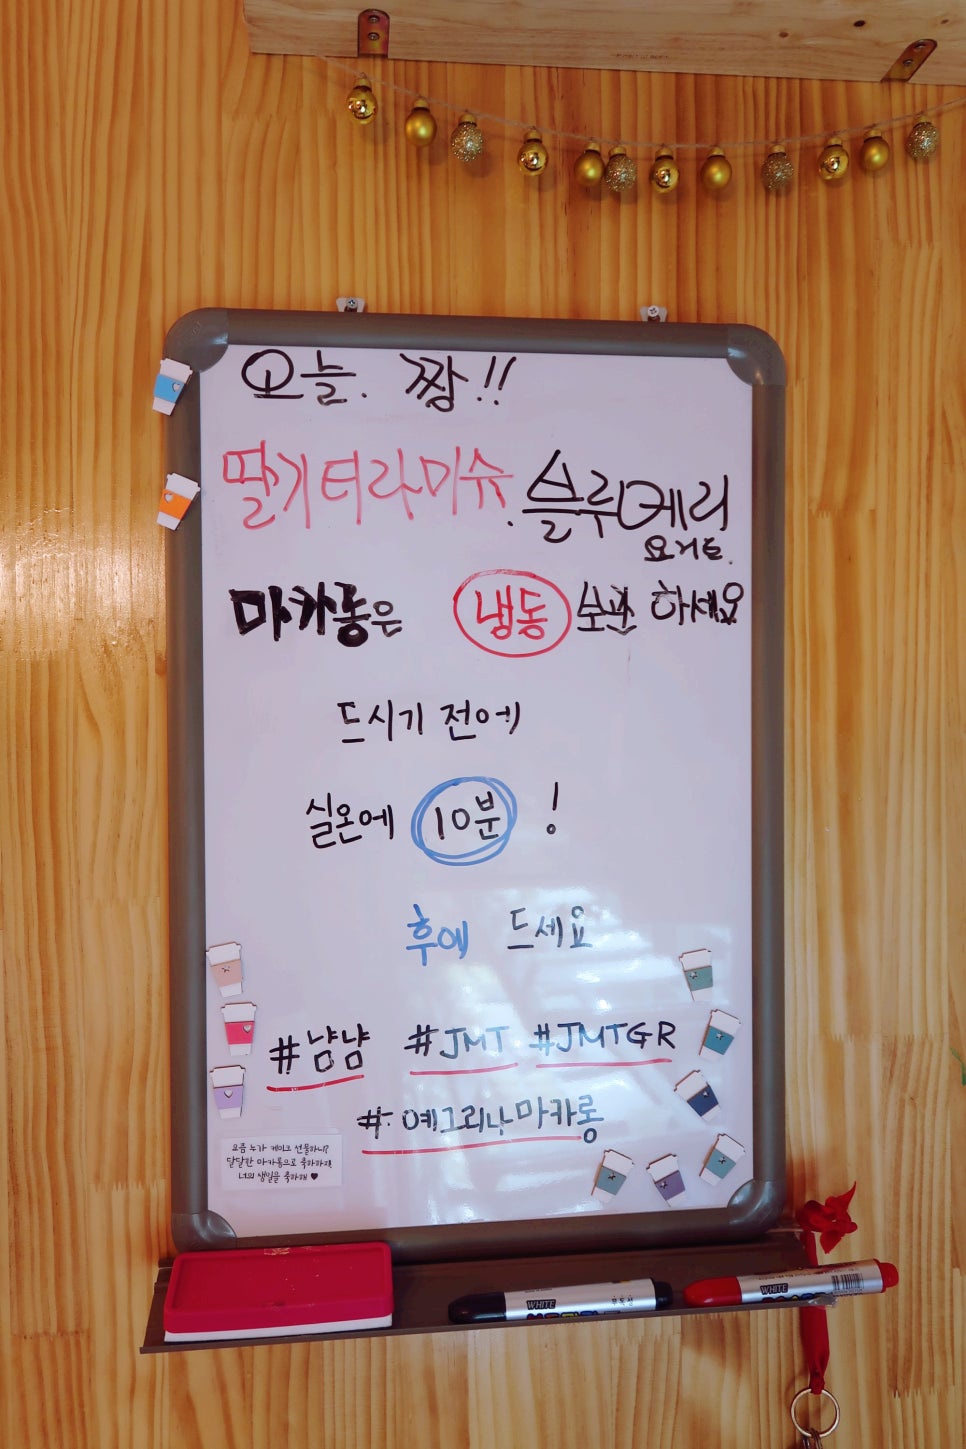 오늘. 짱!!
딸기티라미슈. 블루베리
요거트.
마카롱은 냉동 보관 하세요
드시기 전에
실온에 10분 !
후에 드세요
#냠냠 #JMT #JMTGR
#예그리나마카롱
요즘 누가 케이크 선물하니?
달달한 마카롱으로 축하하래
너의 생일을 축하해 ♥
WHITE
WHITE